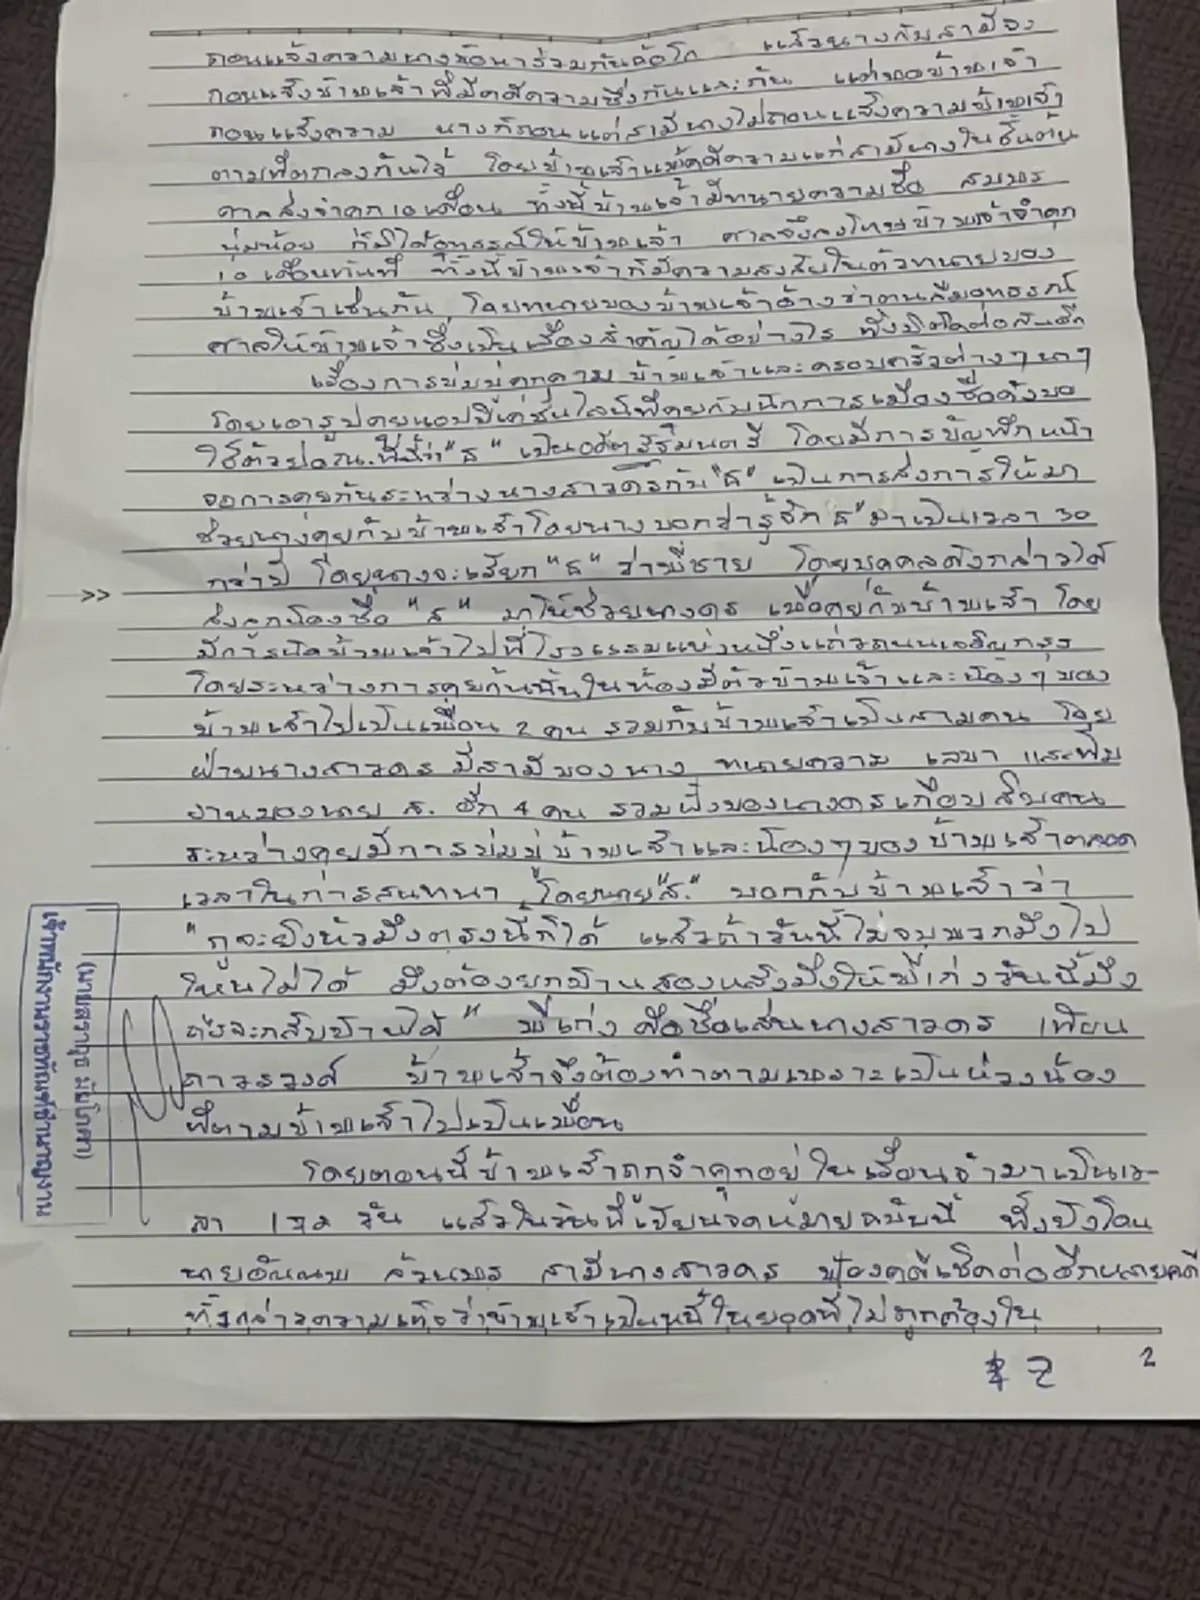 ถอนแจ้งความนางข้อหาร่วมกันฉ้อโกง แล้วนางกับสามีจะ
ถอนแจ้งข้าพเจ้าที่มีคดีความซึ่งกันและกัน แต่พอข้าพเจ้า
ถอนแจ้งความ นางก็ถอนแต่สามีนางไม่ถอนแจ้งความข้าพเจ้า
ตามที่ตกลงกันไว้ โดยข้าพเจ้าแพ้คดีความแก่สามีนางในชั้นต้น
ศาลสั่งจำคุก 10 เดือน ทั้งนี้ข้าพเจ้ามีทนายความชื่อ สมพร
นุ่มน้อย ก็มิได้อุทธรณ์ให้ข้าพเจ้า ศาลจึงลงโทษข้าพเจ้าจำคุก
10 เดือนทันที ทั้งนี้ข้าพเจ้าก็มีความสงสัยในตัวทนายของ
ข้าพเจ้าเช่นกัน โดยทนายของข้าพเจ้าอ้างว่าตนลืมอุทธรณ์
ศาลให้ข้าพเจ้าซึ่งเป็นเรื่องสำคัญได้อย่างไร
เรื่องการข่มขู่คุกคาม ข้าพเจ้าและครอบครัวต่างๆ นาๆ
โดยเอารูปคุยแอปพิเคชั่นไลน์ที่คุยกับนักการเมืองชื่อดังขอ
ใช้ตัวย่อ ณ.ที่นี้ว่า "ธ" เป็นอดีตรัฐมนตรี โดยมีการบันทึกหน้า
จอการคุยกันระหว่างนางสาวดรกับ "ธ" เป็นการสั่งการให้มา
ช่วยนางคุยกับข้าพเจ้าโดยนางบอกว่ารู้จัก "ธ" มาเป็นเวลา 30
กว่าปี โดยนางจะเรียก "ธ" ว่าพี่ชาย โดยบุคคลดังกล่าวได้
ส่งลูกน้องชื่อ "ส" มาให้ช่วยนางดร เพื่อคุยกับข้าพเจ้า โดย
มีการนัดข้าพเจ้าไปที่โรงแรมแห่งหนึ่งแถวถนนเจริญกรุง
โดยระหว่างการคุยกันนั้นในห้องมีตัวข้าพเจ้าและน้องๆ ของ
ข้าพเจ้าไปเป็นเพื่อน 2 คน รวมกับข้าพเจ้าเป็นสามคน โดย
ฝ่ายนางสาวดร มีสามีของนาง ทนายความ เลขา และทีม
งานของนาย ส. อีก 4 คน รวมฝั่งของนางดรเกือบสิบคน
ระหว่างคุยมีการข่มขู่ข้าพเจ้าและน้องๆ ของข้าพเจ้าตลอด
เวลาในการสนทนา โดยนาย "ส." บอกกับข้าพเจ้าว่า
"กูจะยิงหัวมึงตรงนี้ก็ได้ แล้วถ้าวันนี้ไม่จบพวกมึงไป
ไหนไม่ได้ มึงต้องยกบ้านสองหลังมึงให้พี่เก่ง วันนี้มึง
ถึงจะกลับบ้านได้" พี่เก่ง คือชื่อเล่นนางสาวดร เทียน
ถาวรวงศ์ ข้าพเจ้าจึงต้องทำตามเพราะเป็นห่วงน้อง
ที่ตามข้าพเจ้าไปเป็นเพื่อน
โดยตอนนี้ข้าพเจ้าถูกจำคุกอยู่ในเรือนจำมาเป็นเว-
ลา วัน แล้วในวันที่เขียนจดหมายฉบับนี้ ซึ่งยังโดน
นาย ล้วนพร สามีนางสาวดร ฟ้องคดีเช็คต่ออีกหลายคดี
ทั้งกล่าวความเท็จว่าข้าพเจ้าเป็นหนี้ในยอดที่ไม่ถูกต้องใน
2
2
เจ้าพนักงานราชทัณฑ์ชำนาญงาน